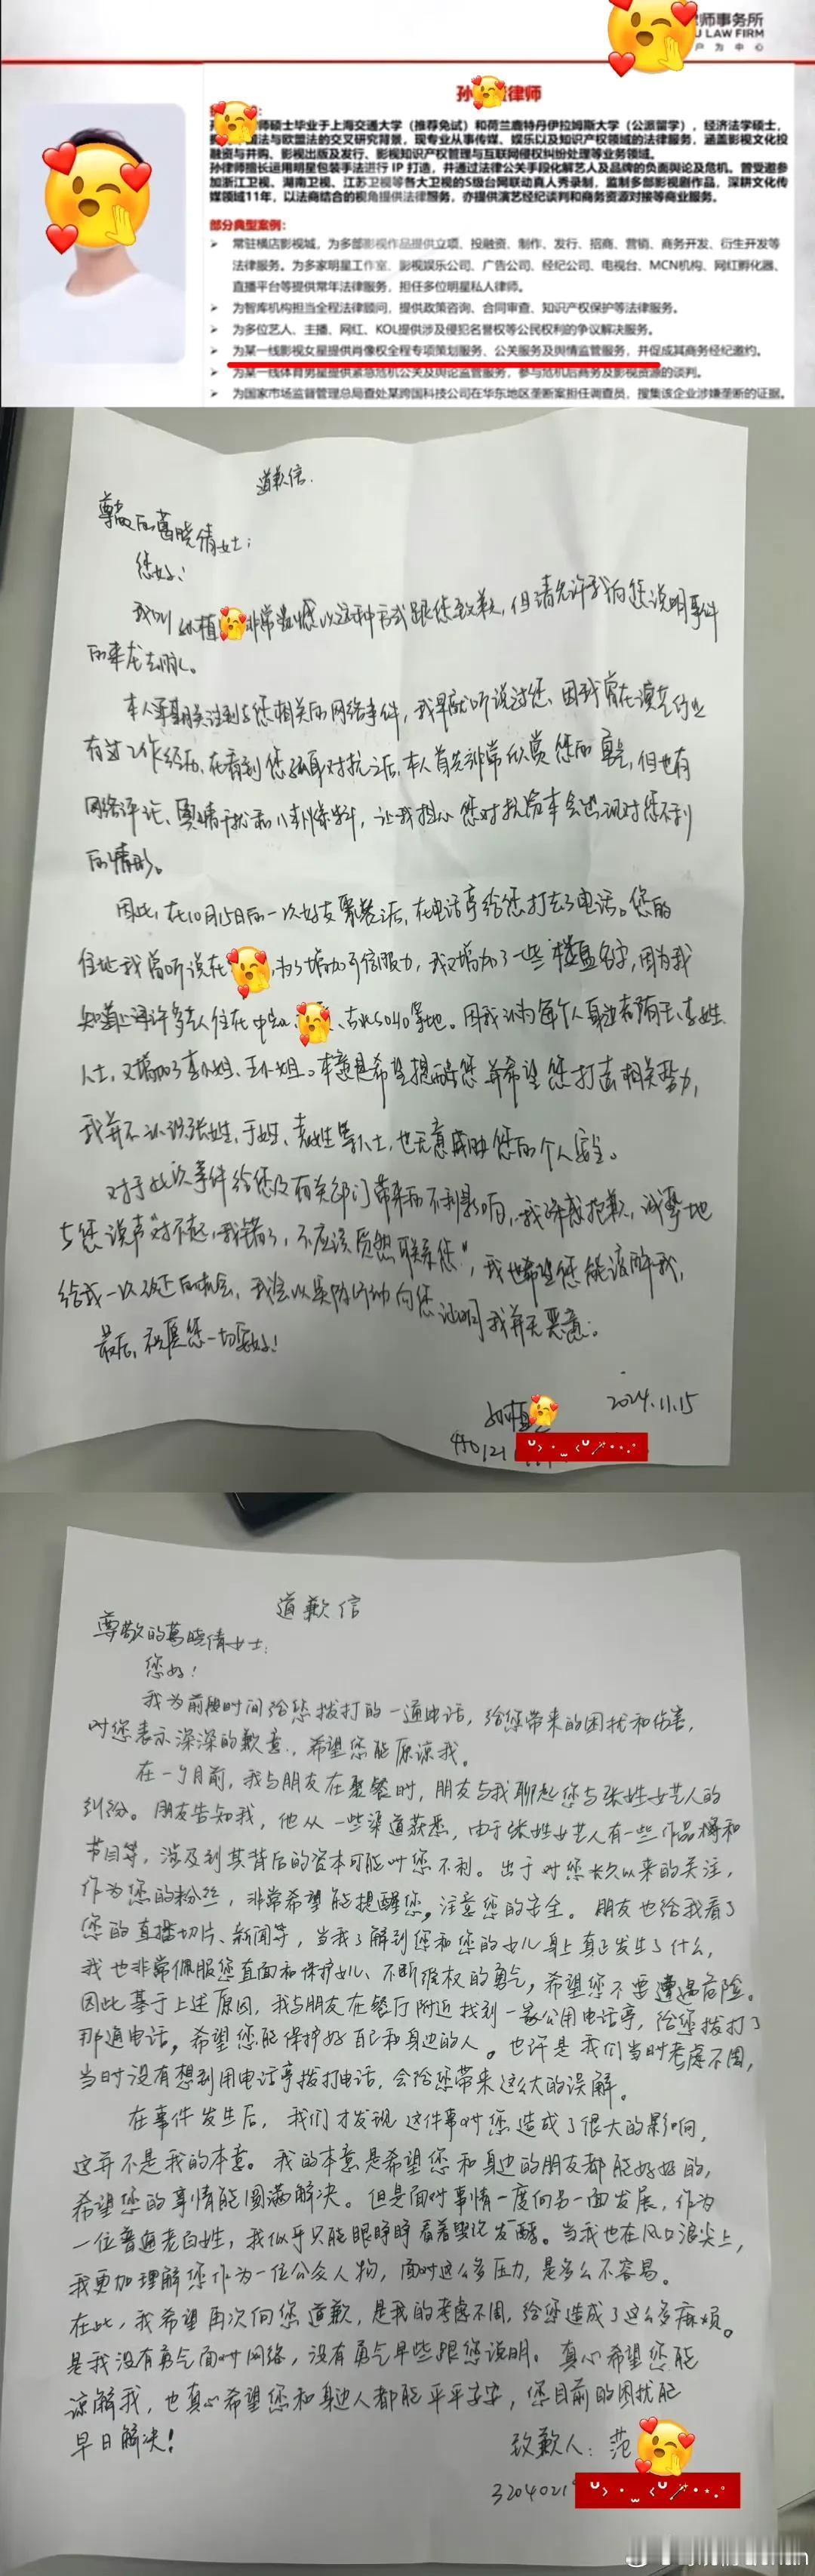 师事务所
U LAW FIRM
户 为 中 心
孙 律师
师硕士毕业于上海交通大学（推荐免试）和荷兰鹿特丹伊拉姆斯大学（公派留学），经济法学硕士，
法与欧盟法的交叉研究背景，现专业从事传媒、娱乐以及知识产权领域的法律服务，涵盖影视文化投
融资与并购、影视出版及发行、影视知识产权管理与互联网侵权纠纷处理等业务领域。
孙律师擅长运用明星包装手法进行 IP 打造，并通过法律公关手段化解艺人及品牌的负面舆论及危机。曾受邀参
加浙江卫视、湖南卫视、江苏卫视等各大卫视的S级台网联动真人秀录制，监制多部影视剧作品，深耕文化传
媒领域11年，以法商结合的视角提供法律服务，亦提供演艺经纪谈判和商务资源对接等商业服务。
部分典型案例：
常驻横店影视城，为多部影视作品提供立项、投融资、制作、发行、招商、营销、商务开发、衍生开发等
法律服务。为多家明星工作室、影视娱乐公司、广告公司、经纪公司、电视台、MCN机构、网红孵化器、
直播平台等提供常年法律服务，担任多位明星私人律师。
为智库机构担当全程法律顾问，提供政策咨询、合同审查、知识产权保护等法律服务。
为多位艺人、主播、网红、KOL提供涉及侵犯名誉权等公民权利的争议解决服务。
为某一线影视女星提供肖像权全程专项策划服务、公关服务及舆情监管服务，并促成其商务经纪邀约。
为某一线体育男星提供紧急危机公关及舆论监管服务，参与危机后商务及影视资源的谈判。
为国家市场监督管理总局查处某跨国科技公司在华东地区垄断案担任调查员，搜集该企业涉嫌垄断的证据。
道歉信.
尊敬的葛晓倩女士：
您好！
我叫孙植 非常遗憾以这种方式跟您致歉，但请允许我向您说明事件
的来龙去脉。
本人早期关注到与您相关的网络事件，我早就听说过您，因我曾在演艺行业
有过工作经历，在看到您孤身对抗之后，本人首先非常欣赏您的勇气，但也有
网络评论、舆情干扰和八卦爆料，让我担心您对抗资本会出现对您不利
的情形。
因此，在10月15日的一次好友聚餐之后，在电话亭给您打去了电话。您的
住址我曾听说在 ，为了增加可信服力，我又增加了一些楼盘名字，因为我
知道上海许多艺人住在中 、古北SOHO等地。因我认为每个人身边都有王、李姓
人士，又增加了李小姐、王小姐。本意是希望提醒您并希望您打击相关势力，
我并不认识张姓、于姓、袁姓等人士，也无意威胁您的个人安全。
对于此次事件给您及有关部门带来的不利影响，我深感抱歉，诚挚地
与您说声“对不起，我错了，不应该贸然联系您”，我也希望您能谅解我，
给我一次改正的机会，我会以实际行动向您证明我并无恶意。
最后，祝愿您一切安好！
孙植
2024.11.15
道歉信
尊敬的葛晓倩女士：
您好！
我为前段时间给您拨打的一通电话，给您带来的困扰和伤害，
对您表示深深的歉意，希望您能原谅我。
在一个月前，我与朋友在聚餐时，朋友与我聊起您与张姓女艺人的
纠纷。朋友告知我，他从一些渠道获悉，由于张姓女艺人有一些作品和
节目等，涉及到其背后的资本可能对您不利。出于对您长久以来的关注，
作为您的粉丝，非常希望能提醒您，注意您的安全。朋友也给我看了
您的直播切片、新闻等，当我了解到您和您的女儿身上真正发生了什么，
我也非常佩服您直面和保护女儿、不断维权的勇气，希望您不要遭遇危险。
因此基于上述原因，我与朋友在餐厅附近找到一家公用电话亭，给您拨打了
那通电话，希望您能保护好自己和身边的人。也许是我们当时考虑不周，
当时没有想到用电话亭拨打电话，会给您带来这么大的误解。
在事件发生后，我们才发现这件事对您造成了很大的影响，
这并不是我的本意。我的本意是希望您和身边的朋友都能好好的，
希望您的事情能圆满解决。但是面对事情一度向另一面发展，作为
一位普通老百姓，我似乎只能眼睁睁看着舆论发酵。当我也在风口浪尖上，
我更加理解您作为一位公众人物，面对这么多压力，是多么不容易。
在此，我希望再次向您道歉，是我的考虑不周，给您造成了这么多麻烦。
是我没有勇气面对网络，没有勇气早些跟您说明。真心希望您能
谅解我，也真心希望您和身边人都能平平安安，您目前的困扰能
早日解决！
致歉人：范
3204021